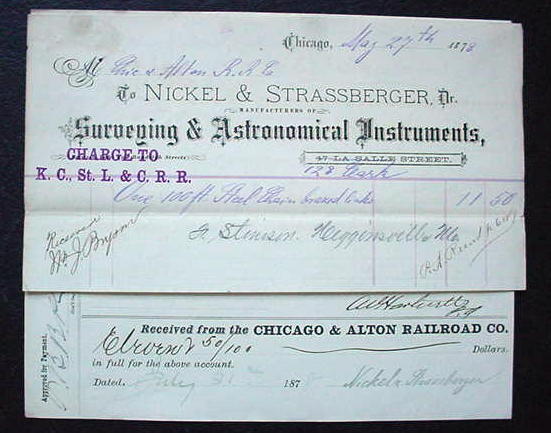 Chicago, May 27th 1878
M Chic & Alton R.R. Co
To NICKEL & STRASSBERGER, Dr.
MANUFACTURERS OF
Surveying & Astronomical Instruments,
CHARGE TO
47 LA SALLE STREET.
128 Clark
K. C., St. L. & C. R. R.
One 100ft Steel Chain brazed links 11 50
Received
F. Stimson. Higginsville Mo
Received from the CHICAGO & ALTON RAILROAD CO.
Eleven & 50/100 Dollars.
in full for the above account.
Dated. July 187
Nickel & Strassberger
Approved for Payment.